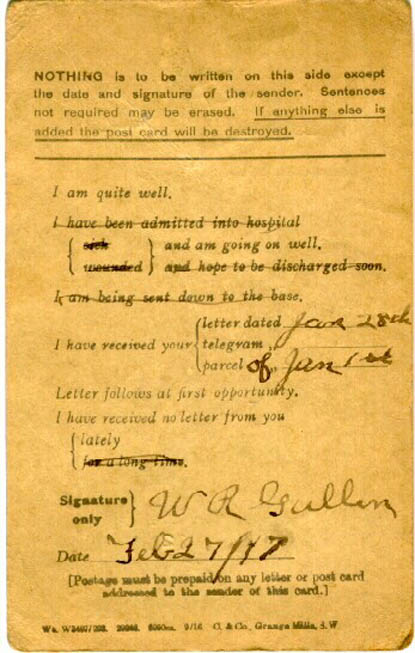 NOTHING is to be written on this side except
the date and signature of the sender. Sentences
not required may be erased. If anything else is
added the post card will be destroyed.
I am quite well.
I have been admitted into hospital
{ sick } and am going on well.
{ wounded } and hope to be discharged soon.
I am being sent down to the base.
I have received your { letter dated Jan 28th
telegram „
parcel of „ Jan 1st
Letter follows at first opportunity.
I have received no letter from you
{ lately
for a long time.
Signature only } W R Gullen
Date Feb 27/17
[Postage must be prepaid on any letter or post card
addressed to the sender of this card.]
9/16 C. & Co., Grange Mills, S.W